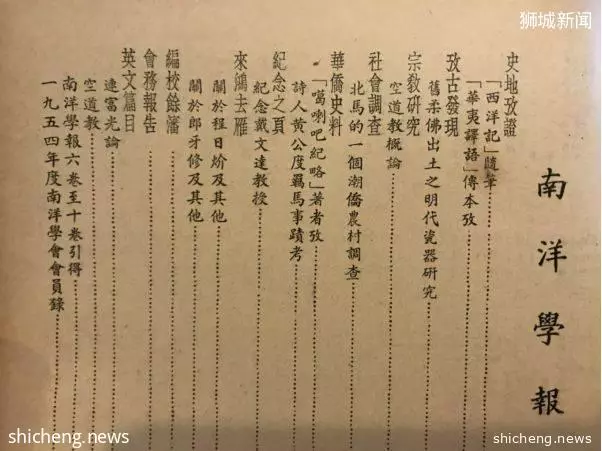 狮城新闻
南洋學報
史地攷證
「西洋記」隨筆
「華夷譯語」傳本攷
攷古發現
舊柔佛出土之明代瓷器研究
宗教研究
空道教概論
社會調查
北馬的一個潮僑農村調查
華僑史料
「噶喇吧紀略」著者攷
詩人黄公度羈馬事蹟考
紀念之頁
紀念戴文達教授
來鴻去雁
關於程日炌及其他
關於郎牙修及其他
編校餘瀋
會務報告
英文篇目
連富光論
空道教
南洋學報六卷至十卷引得
一九五四年度南洋學會會員錄
shicheng.news
shicheng.news